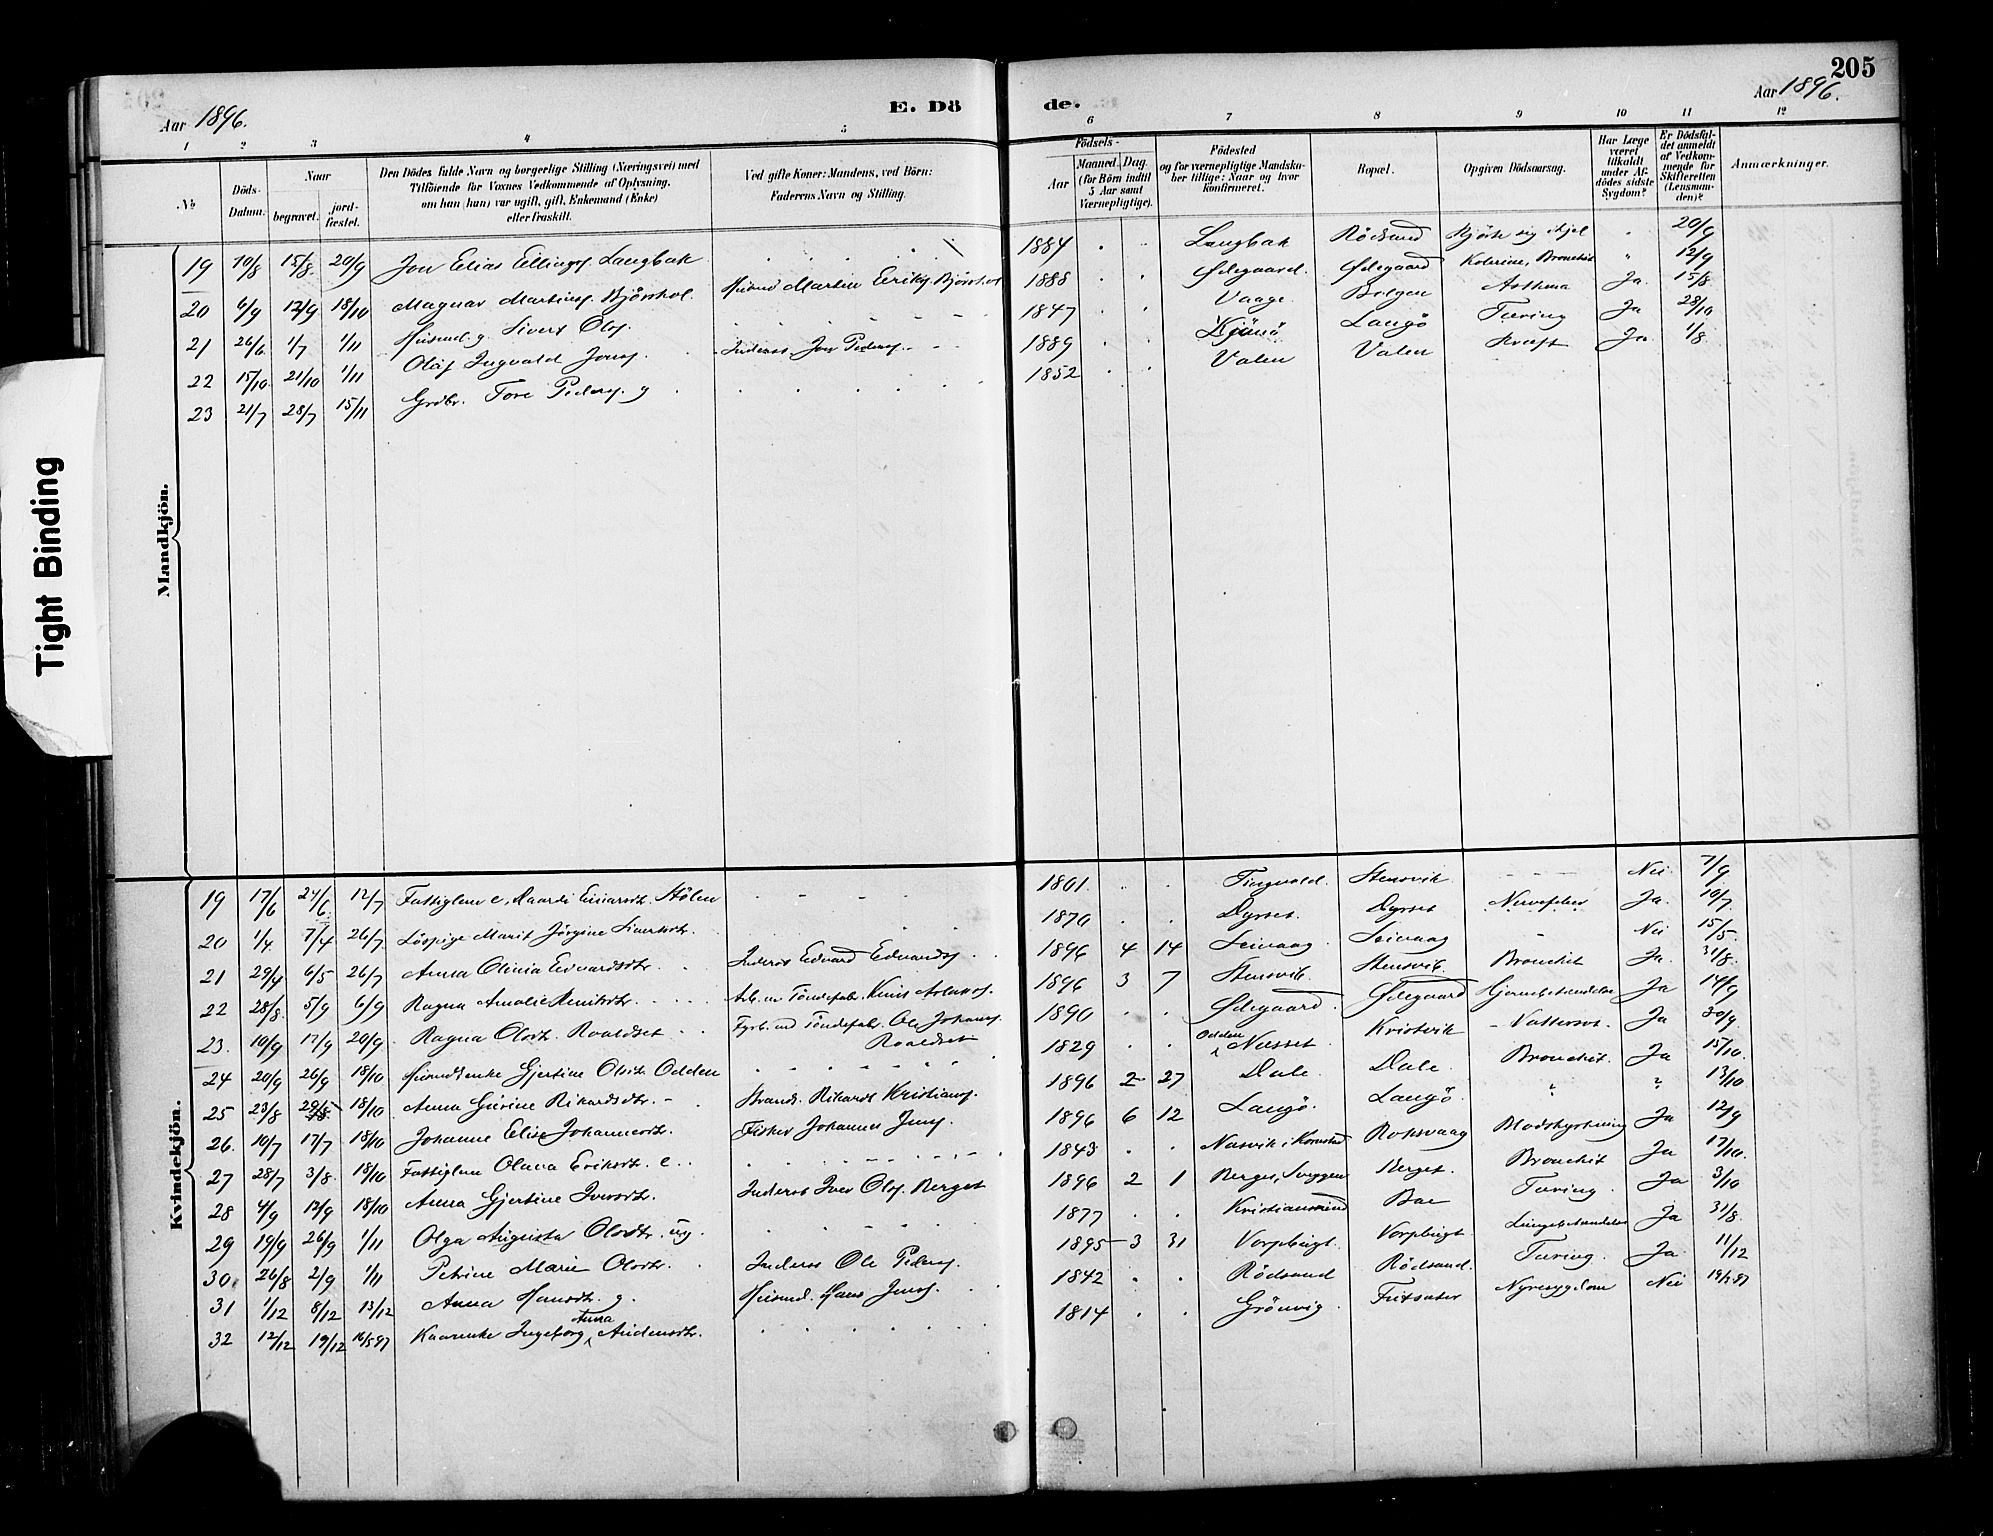 205
Aar 1896.
E. Dö
de.
Aar 1896.
1 2 3 4 5 6 7 8 9 10 11 12
No
Döds-Datum.
Naar
begravet.
jord-fæstet.
Den Dödes fulde Navn og borgerlige Stilling (Næringsvei) med
Tilföiende for Voxnes Vedkommende af Oplysning,
om han (hun) var ugift, gift, Enkemand (Enke)
eller fraskilt.
Ved gifte Koner: Mandens, ved Börn:
Faderens Navn og Stilling.
Födsels-
Aar
Maaned Dag
(for Börn indtil
5 Aar samt
Værnepligtige).
Födested
og for værnepligtige Mandska-
ber tillige: Naar og hvor
konfirmeret.
Bopæl.
Opgiven Dödsaarsag.
Har Læge
været
tilkaldt
under Af-
dödes sidste
Sygdom?
Er Dödsfal-
det anmeldt
af Vedkom-
mende for
Skifteretten
(Lensman-
den)?
Anmærkninger.
Tight Binding
Mandkjön.
19 10/8 15/8 20/9 Jon Elias Ellings. Langbak 1884 Langbak Rödsand 20/9
20 6/9 12/9 18/10 Magnar Martins. Björshol. Husmd Martin Eriks. Björshol 1888 Ødegaard Ødegaard 12/9
21 26/6 1/7 1/11 Husmd. g. Sivert Ols. 1847 Vaage. Bolgen Asthma Ja 15/8
22 15/10 21/10 1/11 Olaf Ingvald Jons. Inderst Jon Peders. 1889 Langö Tæring Ja 28/10
23 21/7 28/7 15/11 Grdbr. Tore Peders. g 1852 Valen Valen Kræft Ja 1/8
Kvindekjön.
19 17/6 24/6 12/7 Fattiglem e. Einarsdtr. Stölen 1801 Tingvold. Stensvik Nei 7/9
20 1/4 7/4 26/7 Löspige Marit Jörgine Sivertsdtr. 1870 Dyrset Dyrset Nervefeber Ja. 10/7
21 29/4 6/5 26/7 Anna Olivia Edvardsdtr. Inderst Edvard Edvards. 1896 4 14 Leivaag Leivaag Nei 15/5
22 28/8 5/9 6/9 Ragna Amalie Knutsdtr. Arb. ved Töndefabr. Knut Aslaks. 1896 3 7 Stensvik. Stensvik. Bronchit Ja. 31/8
23. 10/9 17/9 20/9 Ragna Olsdt. Roaldset Fyrb. ved Töndefab. Ole Johans.
Roaldset 1890 Ødegaard Ødegaard Hjernebetændelse Ja 14/9
24 20/9 26/9 18/10 Husmdsenke Gjertine Olsdtr. Odden 1829 Odden Næsset. Kristvik Vattersot. Ja 30/9
25 23/8 29/8 18/10 Anna Gurine Rikardsdtr. Strands. Rikard Kristians. 1896 2 27 Dale. Dale. Bronchit. Ja 15/10
26. 10/7 17/7 18/10 Johanne Elise Johannesdtr. Fisker Johannes Jens. 1896 6 12 Langö. Langö. " " 13/10
27 28/7 3/8 18/10 Fattiglem Olava Eriksdtr. e. 1843 Nasvik i Kornstad Roksvaag Blodstyrtning Ja 12/9
28 4/9 12/9 18/10 Anna Gjertine Iversdtr. Inderst Iver Ols. Berget 1896 2 1 Berget, Sveggen Berget. Bronchit Ja 17/10
29 19/9 26/9 1/11 Olga Augusta Olsdtr. ug. 1877 Kristiansund Bae Tæring. Ja 3/10
30 26/8 2/9 1/11 Petrine Marie Olsdtr. Inderst Ole Peders. 1895 3 31 Vorpbugt. Vorpbugt. Lungebetændelse Ja 31/8
31 1/12 8/12 13/12 Anna Hansdtr. g. Husmd. Hans Jens. 1842 Rödsand Rödsand. Tæring. Ja 11/12
32 12/12 19/12 16/5 97 Kaarenke Ingeborg Anna Andersdtr. 1814 Grönvig. Futsæter Nyresygdom Nei 19/1 97